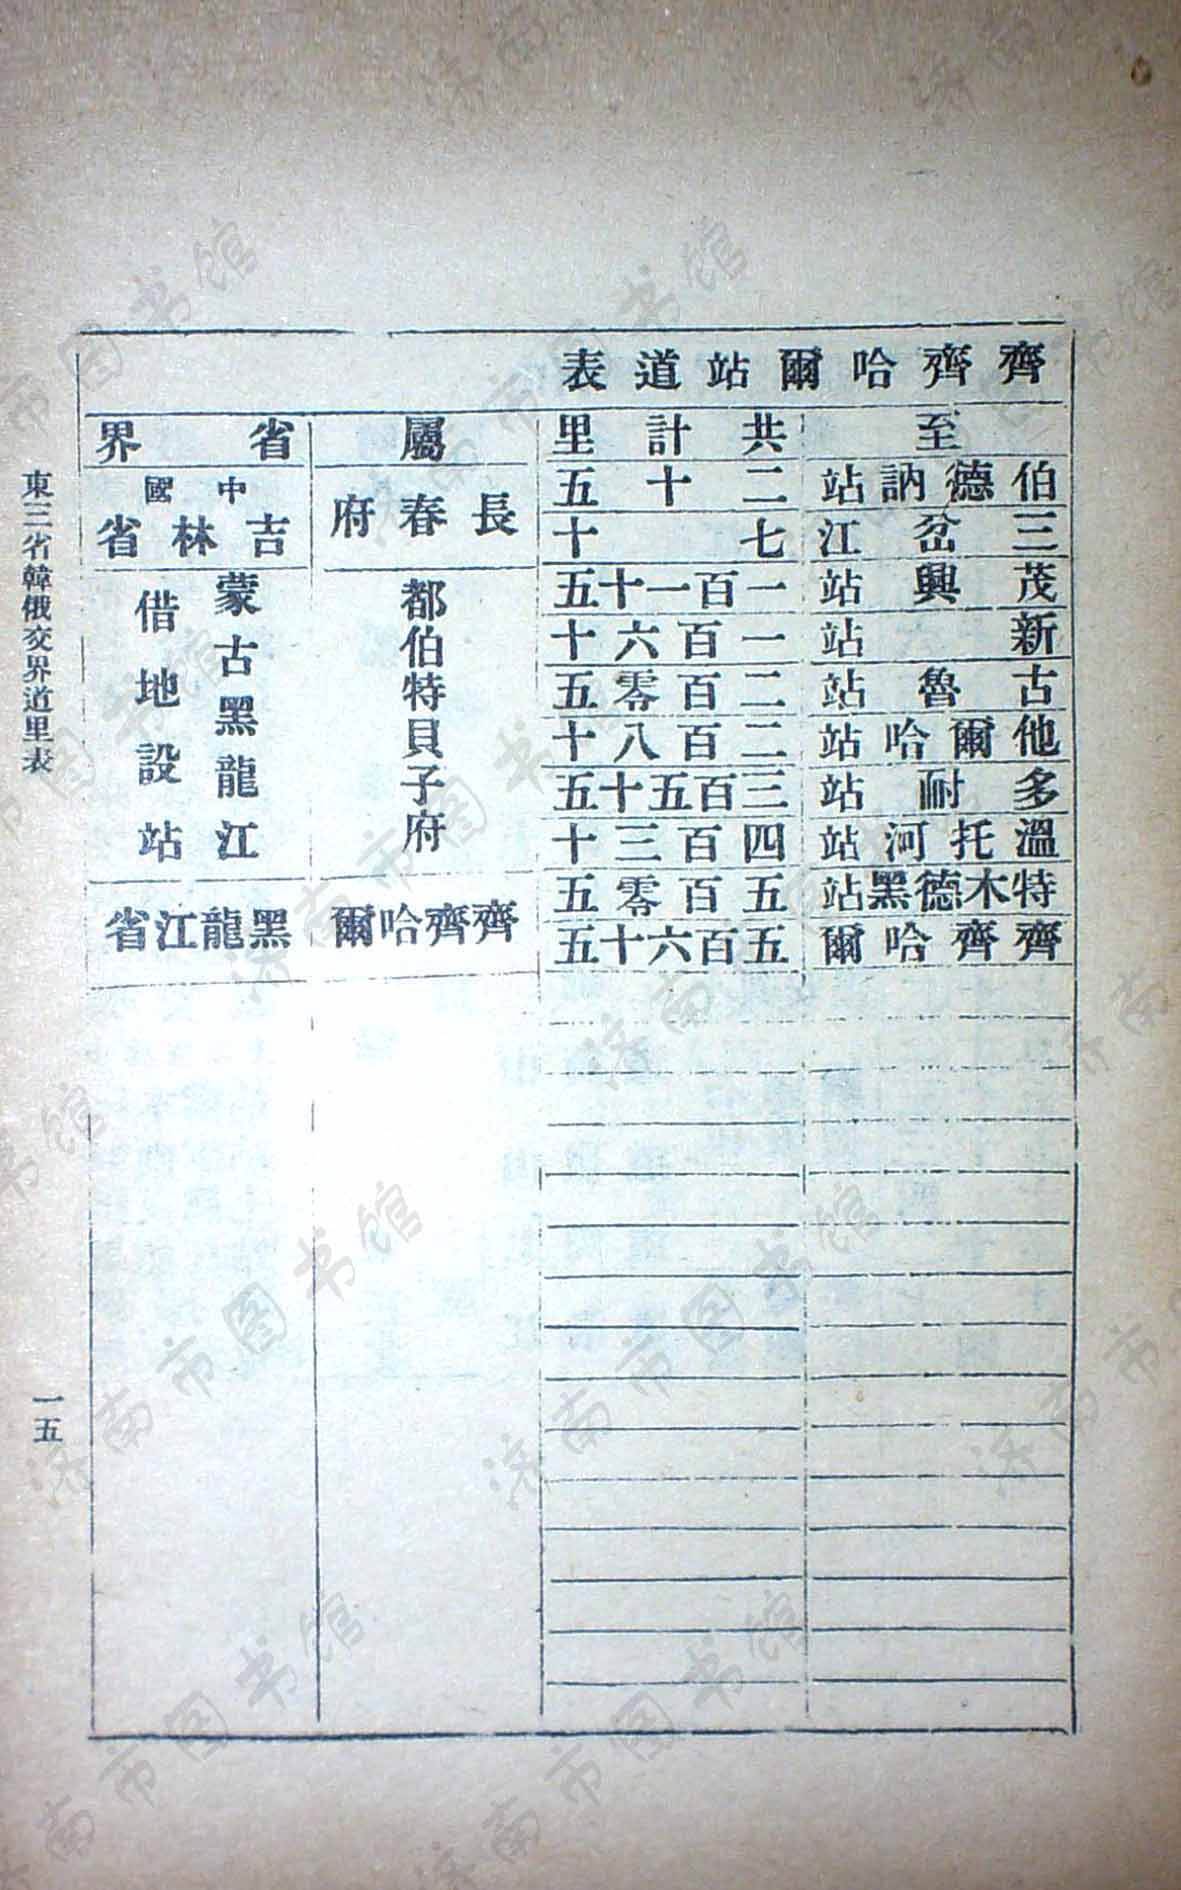 齊齊哈爾站道表
至 共計里 屬 省界
伯德訥站 二十五 長春府 中國吉林省
三岔江 七十
茂興站 一百一十五 都伯特貝子府 蒙古黑龍江借地設站
新站 一百六十
古魯站 二百零五
他爾哈站 二百八十
多耐站 三百五十五
溫托河站 四百三十
特木德黑站 五百零五 齊齊哈爾 黑龍江省
齊齊哈爾 五百六十五
東三省韓俄交界道里表
一五
济南市图书馆